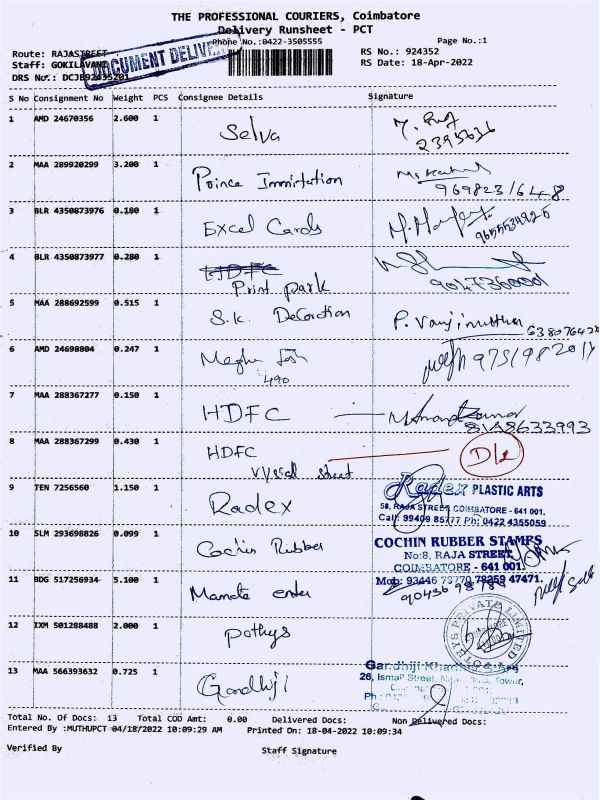 THE PROFESSIONAL COURIERS, Coimbatore
Delivery Runsheet - PCT
Phone No.:0422-3505555
Page No.:1
Route: RAJASTREET
RS No.: 924352
Staff: GOKILAVANI
RS Date: 18-Apr-2022
DOCUMENT DELIVE
DRS No.: DCJB92435201
S No Consignment No Weight PCS Consignee Details Signature
1 AMD 24670356 2.600 1 Selva 2395636
2 MAA 289920299 3.200 1 Prince Immirtation 9698231648
3 BLR 4350873976 0.180 1 Excel Cards 9655534926
4 BLR 4350873977 0.280 1 HDFC
Print park 9047360001
5 MAA 288692599 0.515 1 S.k. Decoration P. Vanjimuthu 638076428
6 AMD 24698804 0.247 1 Megha
490
7 MAA 288367277 0.150 1 HDFC 8148633993
8 MAA 288367299 0.430 1 HDFC
street
9 TEN 7256560 1.150 1 Radex
Radex PLASTIC ARTS
58, RAJA STREET, COIMBATORE - 641 001.
Call: 99409 85777 Ph: 0422 4355059
10 SLM 293698826 0.099 1 Cochin Rubber
COCHIN RUBBER STAMPS
No:8, RAJA STREET,
COIMBATORE - 641 001.
Mob: 93446 79770, 79259 47471.
11 BDG 517256934 5.100 1
12 IXM 501288488 2.000 1 Pothys
13 MAA 566393632 0.725 1 Gandhiji
26, Ismail Street, Tower,
Total No. Of Docs: 13 Total COD Amt: 0.00 Delivered Docs: Non Delivered Docs:
Entered By :MUTHUPCT 04/18/2022 10:09:29 AM Printed On: 18-04-2022 10:09:34
Verified By Staff Signature